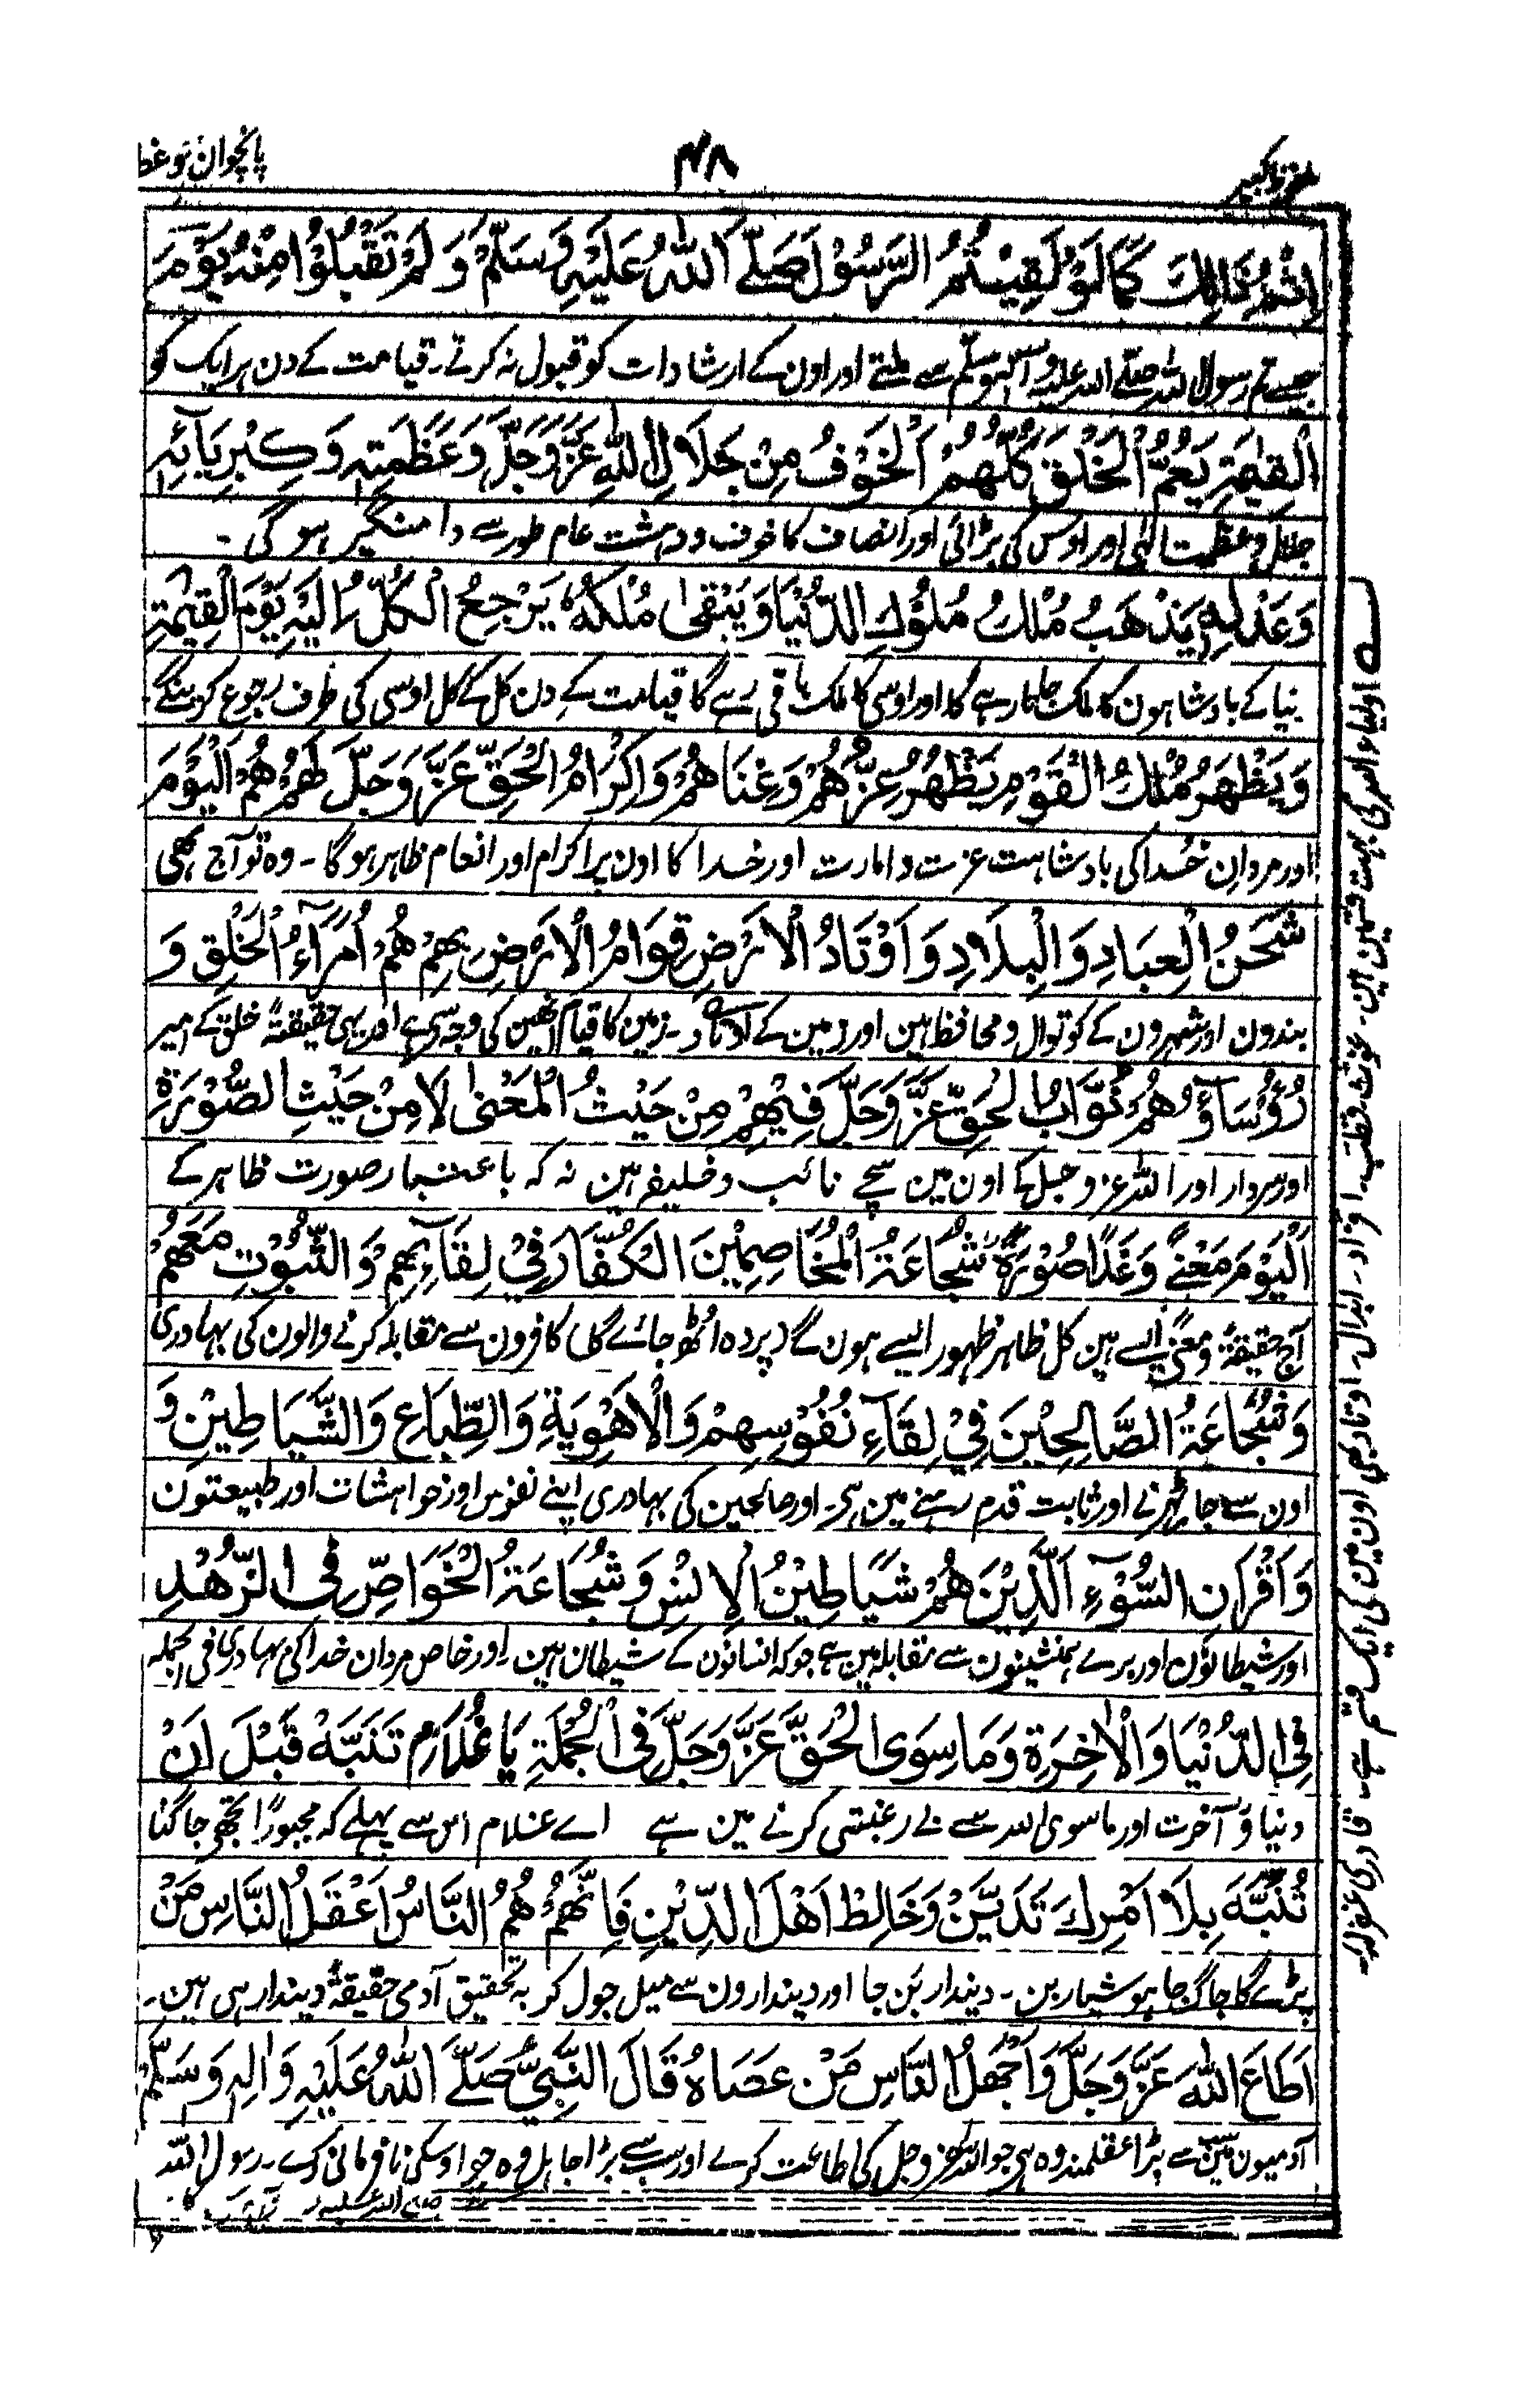 پانچوان وعظ
۴۸
اِثْمُ ذَالِكَ كَمَا لَوْ لَقِيْتُمُ الرَّسُوْلَ صَلَّے اللهُ عَلَيْهِ وَسَلَّمْ وَلَمْ تَقْبَلُوْا مِنْهُ يَوْمَ
جیسے تم رسول اللہ صلے اللہ علیہ وآلہ وسلم سے ملتے اور اون کے ارشادات کو قبول نہ کرتے۔ قیامت کے دن ہر ایک کو
الْقِيٰمَةِ يَعُمُّ الْخَلْقَ كُلَّهُمُ الْخَوْفُ مِنْ جَلَالِ اللهِ عَزَّوَجَلَّ وَعَظَمَتِهٖ وَكِبْرِيَآئِهٖ
جلال وعظمت الٰہی اور اوس کی بڑائی اور انصاف کا خوف و دہشت عام طور سے دامنگیر ہو گی ۔
وَعَدْلِهٖ يَذْهَبُ مُلْكُ مُلُوْكِ الدُّنْيَا وَيَبْقٰى مُلْكُهٗ يَرْجِعُ الْكُلُّ اِلَيْهِ يَوْمَ الْقِيٰمَةِ
نیا کے بادشاہون کا ملک جاتا رہے گا اور اوسی کا ملک باقی رہے گا قیامت کے دن کل کے کل اوسی کی طرف رجوع کرینگے
وَيَظْهَرُ مُلْكُ الْقَوْمِ يَظْهَرُ عِزُّهُمْ وَغِنَاهُمْ وَاِكْرَامُ الْحَقِّ عَزَّ وَجَلَّ لَهُمْ هُمُ الْيَوْمَ
اور مردانِ خدا کی بادشاہت عزت و امارت اور خدا کا اون پر اکرام اور انعام ظاہر ہو گا ۔ وہ تو آج بھی
شَحَنُ الْعِبَادِ وَالْبِلَادِ وَاَوْتَادُ الْاَرْضِ قِوَامُ الْاَرْضِ بِهِمْ هُمْ اُمَرَآءُ الْخَلْقِ وَ
بندون اور شہرون کے کوتوال و محافظ ہین اور زمین کے اوتاد ۔ زمین کا قیام انھین کی وجہ سے ہی اور یہی حقیقۃً خلق کے امیر
رُؤُسَآؤُهُمْ نُوَّابُ الْحَقِّ عَزَّوَجَلَّ فِيْهِمْ مِنْ حَيْثُ الْمَعْنٰى لَا مِنْ حَيْثِ الصُّوْرَةِ
اور سردار اور اللہ عز وجل کے اون مین سچے نائب و خلیفہ ہین نہ کہ باعتبار صورت ظاہر کے
اَلْيَوْمَ مَعْنًے وَغَدًا صُوْرَةً شُجَاعَةُ الْمُخَاصِمِيْنَ الْكُفَّارَ فِيْ لِقَآءِهِمْ وَالثُّبُوْتِ مَعَهُمْ
آج حقیقۃً و معنیً ایسے ہین کل ظاہر ظہور ایسے ہون گے (پردہ اٹھ جائے گا) کافرون سے مقابلہ کرنے والون کی بہادری
وَشُجَاعَةُ الصَّالِحِيْنَ فِيْ لِقَآءِ نُفُوْسِهِمْ وَالْاَهْوِيَةِ وَالطِّبَاعِ وَالشَّيَاطِيْنِ وَ
اون سے جا ٹھہرنے اور ثابت قدم رہنے مین ہی۔ اور صالحین کی بہادری اپنے نفوس اور خواہشات اور طبیعتون
وَاَقْرَانِ السُّوْءِ الَّذِيْنَ هُمْ شَيَاطِيْنُ الْاِنْسِ وَشُجَاعَةُ الْخَوَاصِّ فِى الزُّهْدِ
اور شیطانون اور برے ہمنشینون سے مقابلہ مین ہے جو کہ انسانون کے شیطان ہین۔ اور خاص مردان خدا کی بہادری فی الجملہ
فِى الدُّنْيَا وَالْاٰخِرَةِ وَمَا سِوَى الْحَقِّ عَزَّ وَجَلَّ فِى الْجُمْلَةِ يَا غُلَامُ تَنَبَّهْ قَبْلَ اَنْ
دنیا و آخرت اور ما سوی اللہ سے بے رغبتی کرنے مین ہے اے غلام اس سے پہلے کہ مجبوراً تجھے جاگنا
تُنَبَّهَ بِلَا اَمْرِكَ تَدَيَّنْ وَخَالِطْ اَهْلَ الدِّيْنِ فَاِنَّهُمْ هُمُ النَّاسُ اَعْقَلُ النَّاسِ مَنْ
پڑے گا جاگ جا ہوشیار بن ۔ دیندار بن جا اور دیندارون سے میل جول کر بہ تحقیق آدمی حقیقۃً دیندار ہی ہین۔
اَطَاعَ اللهَ عَزَّ وَجَلَّ وَاَجْهَلُ النَّاسِ مَنْ عَصَاهُ قَالَ النَّبِيُّ صَلَّے اللهُ عَلَيْهِ وَاٰلِهٖ وَسَلَّمْ
آدمیون مین سے بڑا عقلمند وہ ہی جو اللہ عز وجل کی اطاعت کرے اور سب سے بڑا جاہل وہ جو اوسکی نافرمانی کرے۔ رسول اللہ
اولیاء اللہ کی بہت قسمین ہین۔ غوث قطب۔ افراد۔ ابدال۔ اوتاد بھی اون مین کی ایک قسم ہے۔ قادری غفرلہ